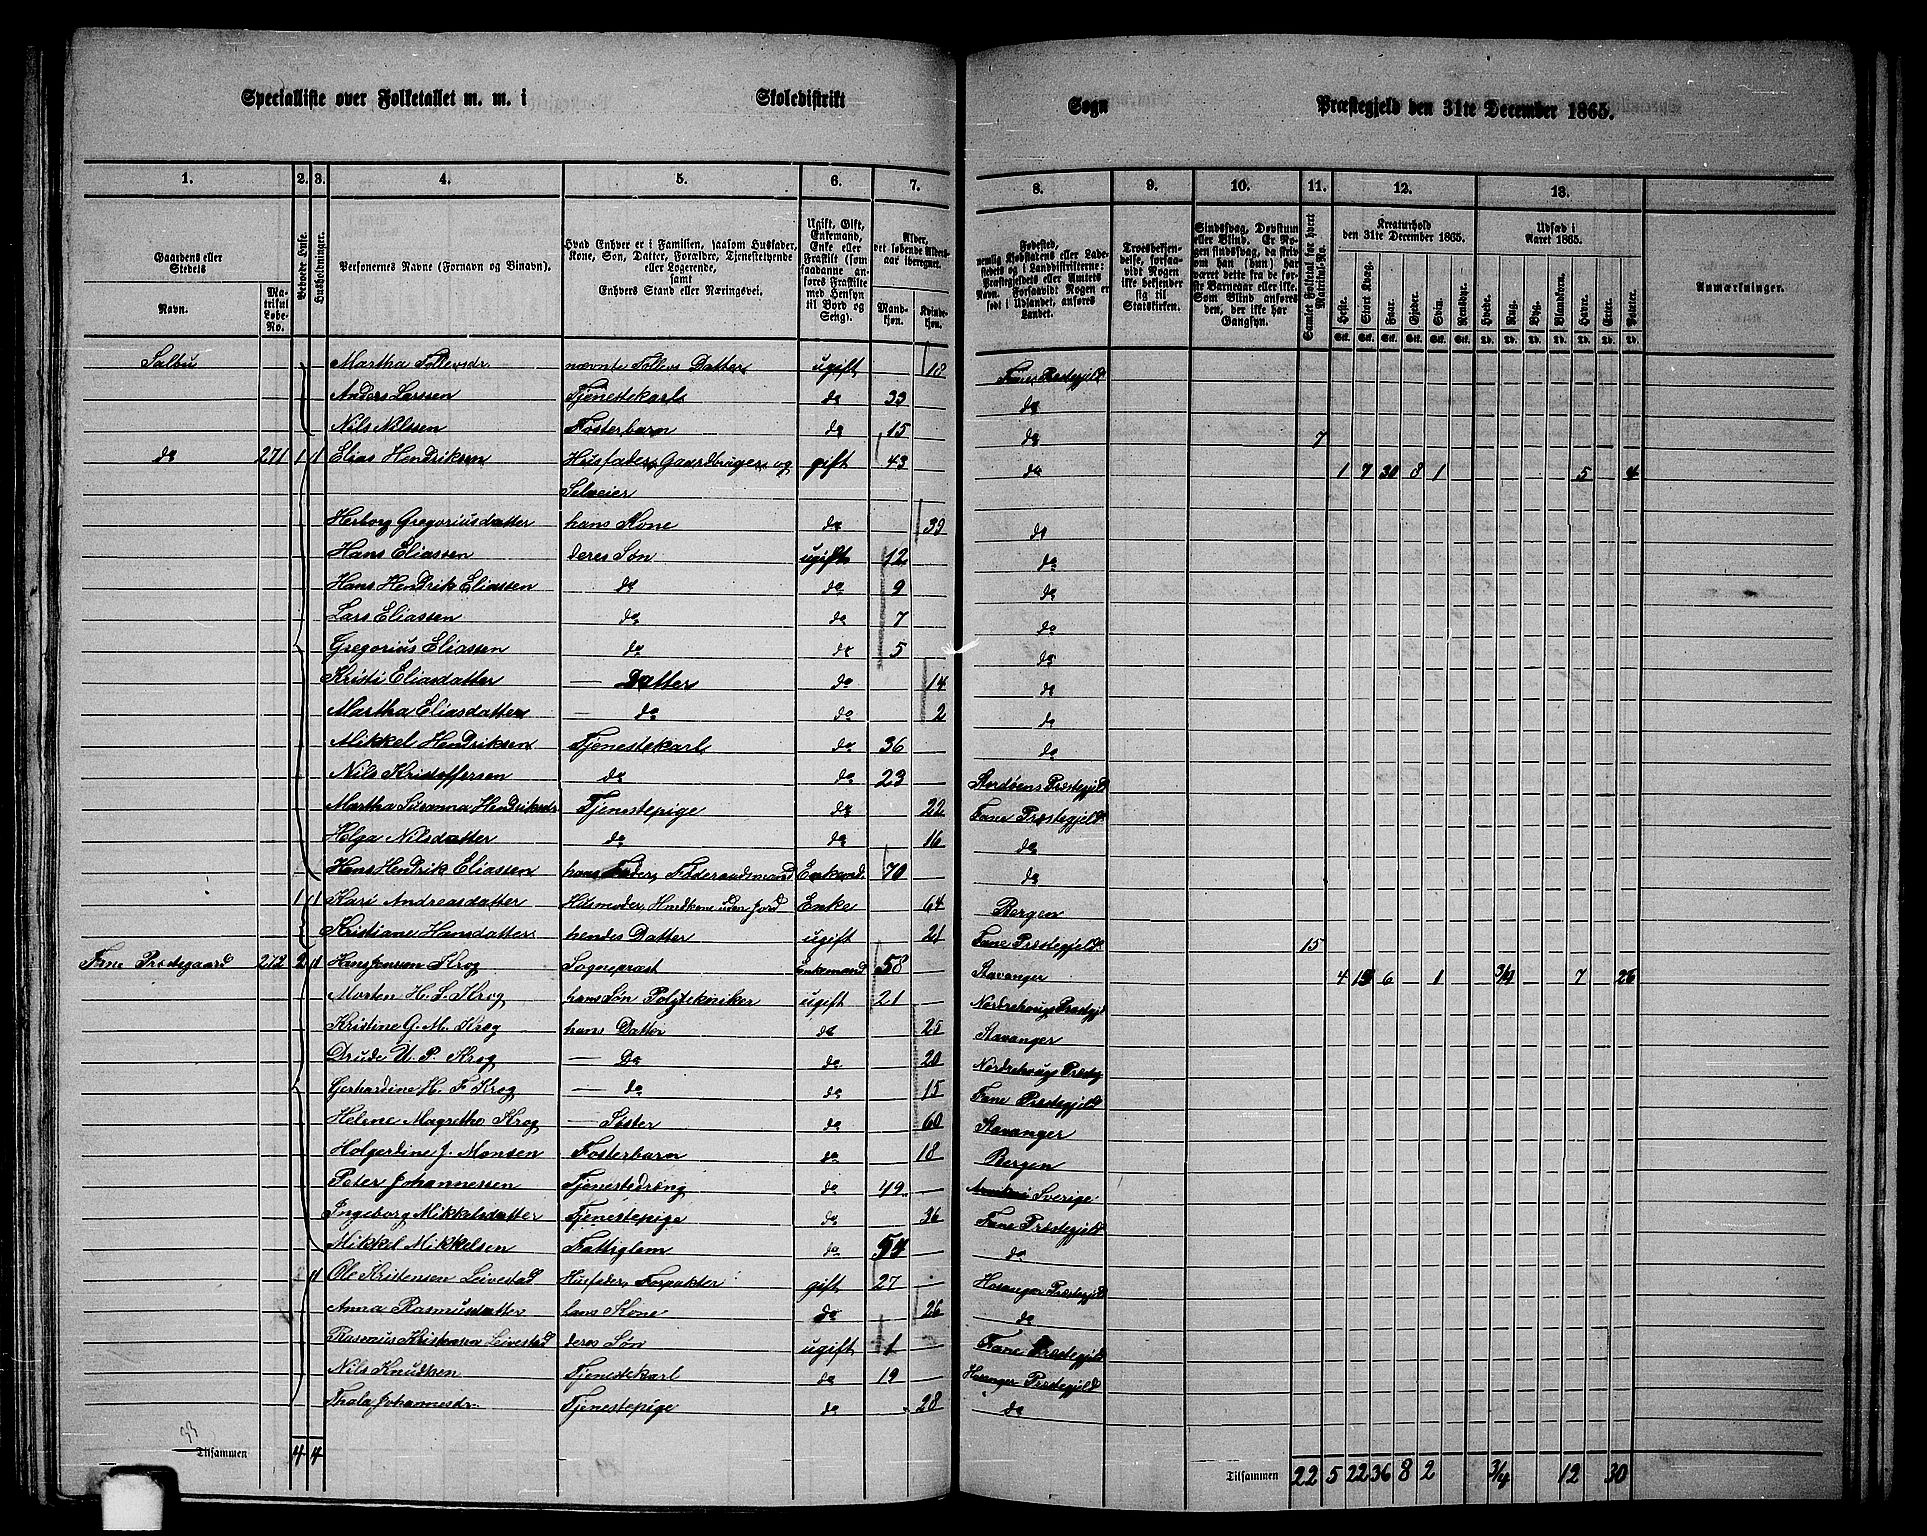 Specialliste over Folketallet m. m. i Skoledistrikt Sogn Præstegjeld den 31te December 1865.
1. 2. 3. 4. 5. 6. 7. 8. 9. 10. 11. 12. 13.
Gaardens eller Stedets
Navn.
Matrikul Løbe-No.
Beboede Huse.
Husholdninger.
Personernes Navne (Fornavn og Binavn).
Hvad Enhver er i Familien, saasom Husfader, Kone, Søn, Datter, Forældre, Tjenestetyende eller Logerende, samt Enhvers Stand eller Næringsvei.
Ugift, Gift, Enkemand, Enke eller Fraskilt (som saadanne anføres Fraskilte med Hensyn til Bord og Seng).
Alder, det løbende Aldersaar iberegnet.
Mandkjøn. Kvindekjøn.
Fødested, nemlig Kjøbstadens eller Ladestedets og i Landdistrikterne: Præstegjeldets eller Amtets Navn. Forsaavidt Nogen er født i Udlandet, anføres Landet.
Troesbekjendelse, forsaavidt Nogen ikke bekjender sig til Statskirken.
Sindssvag, Døvstum eller Blind. Er Nogen sindssvag, da skrives om han (hun) har været dette fra de første Barneaar eller ikke. Som Blind anføres den, der ikke har Gangsyn.
Samlet Folketal for hvert Matrikul-No.
Kreaturhold den 31te December 1865.
Heste. Stort Kvæg. Faar. Gjeder. Svin. Rensdyr.
Udsæd i Aaret 1865.
Hvede. Rug. Byg. Blandkorn. Havre. Erter. Poteter.
Anmærkninger.
Salbu Martha Tollevsdr nævnte Tollevs Datter ugift 18 Fane Præstegjeld
Anders Larssen Tjenestekarl do 33 do
Nils Nilssen Fosterbarn do 15 do 7
do 271 1 1 Elias Hendriksen Husfader, Gaardbruger og gift 43 do 1 7 30 8 1 5 4
Selveier
Herborg Gregoriusdatter hans Kone do 39 do
Hans Eliassen deres Søn ugift 12 do
Hans Hendrik Eliassen do do 9 do
Lars Eliassen do do 7 do
Gregorius Eliassen do do 5 do
Kristi Eliasdatter — Datter do 14 do
Martha Eliasdatter — do do 2 do
Mikkel Hendriksen Tjenestekarl do 36 do
Nils Kristoffersen do do 23 Stordøens Præstegjeld
Martha Susanna Hendriksdr Tjenestepige do 22 Fane Præstegjeld
Helga Nilsdatter do do 16 do
Hans Hendrik Eliassen hans Fader, Føderaadsmand Enkemd. 70 do
1 1 Kari Andreasdatter Huusmoder, uden Jord Enke 64 Bergen
Kristiane Hansdatter hendes Datter ugift 21 Fane Præstegjeld 15
Fane Præstegaard 272 2 1 Hans Jensen Krog Sognepræst Enkemand 58 Stavanger 4 15 6 1 3/4 7 26
Morten H. L. Krog hans Søn Polytekniker ugift 21 Nordrehougs Præstegjd
Kristine G. M. Krog hans Datter do 25 Stavanger
Drude U. P. Krog — Do do 20 Nordrehougs Præstg
Gerhardine H. F Krog — do do 15 Fane Præstegjeld
Helene Magrethe Krog — Søster do 60 Stavanger
Holgerdine J. Monsen Fosterbarn do 18 Bergen
Peter Johannessen Tjenestedreng do 49 Sverige
Ingeborg Mikkelsdatter Tjenestepige do 36 Fane Præstegjeld
Mikkel Mikkelsen Fattiglem do 54 do
1 Ole Kristensen Leivestad Husfader, Forpakter gift 27 Hosanger Præstegjeld
Anna Rasmusdatter hans Kone do 26 do
Rasmus Kristensen Leivestad deres Søn ugift 1 Fane Præstegjeld
Nils Knudsen Tjenestekarl do 19 Hosanger Præstegjeld
Thala Johannesdr Tjenestepige do 28 do
33
Tilsammen 4 4
Tilsammen 22 5 22 36 8 2 3/4 12 30